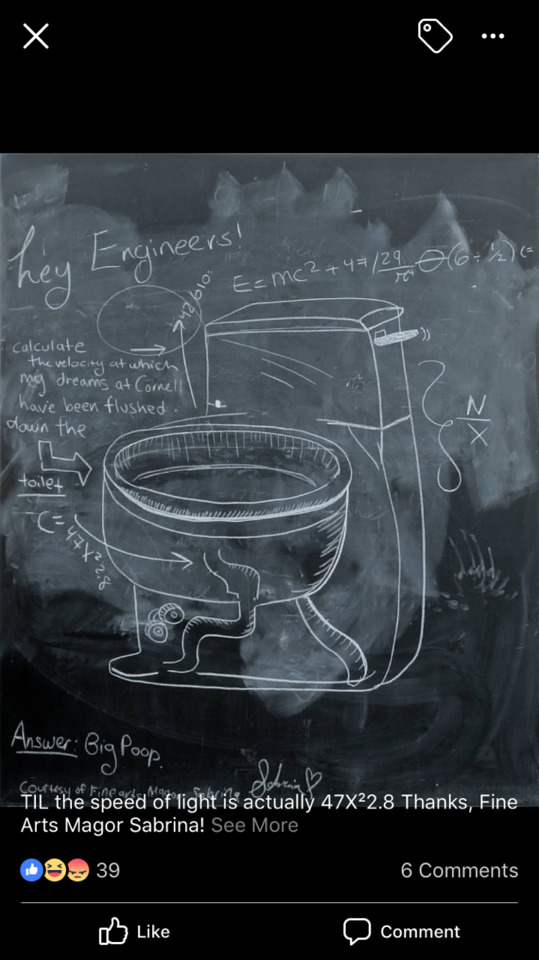 hey Engineers!
E=mc²+4
calculate
the velocity at which
my dreams at Cornell
have been flushed.
down the
toilet
N
X
C=
47X²2.8
Answer: Big Poop.
Courtesy of Fine arts Magor Sabrina
Sabrina ♡
TIL the speed of light is actually 47X²2.8 Thanks, Fine
Arts Magor Sabrina! See More
39
6 Comments
Like
Comment